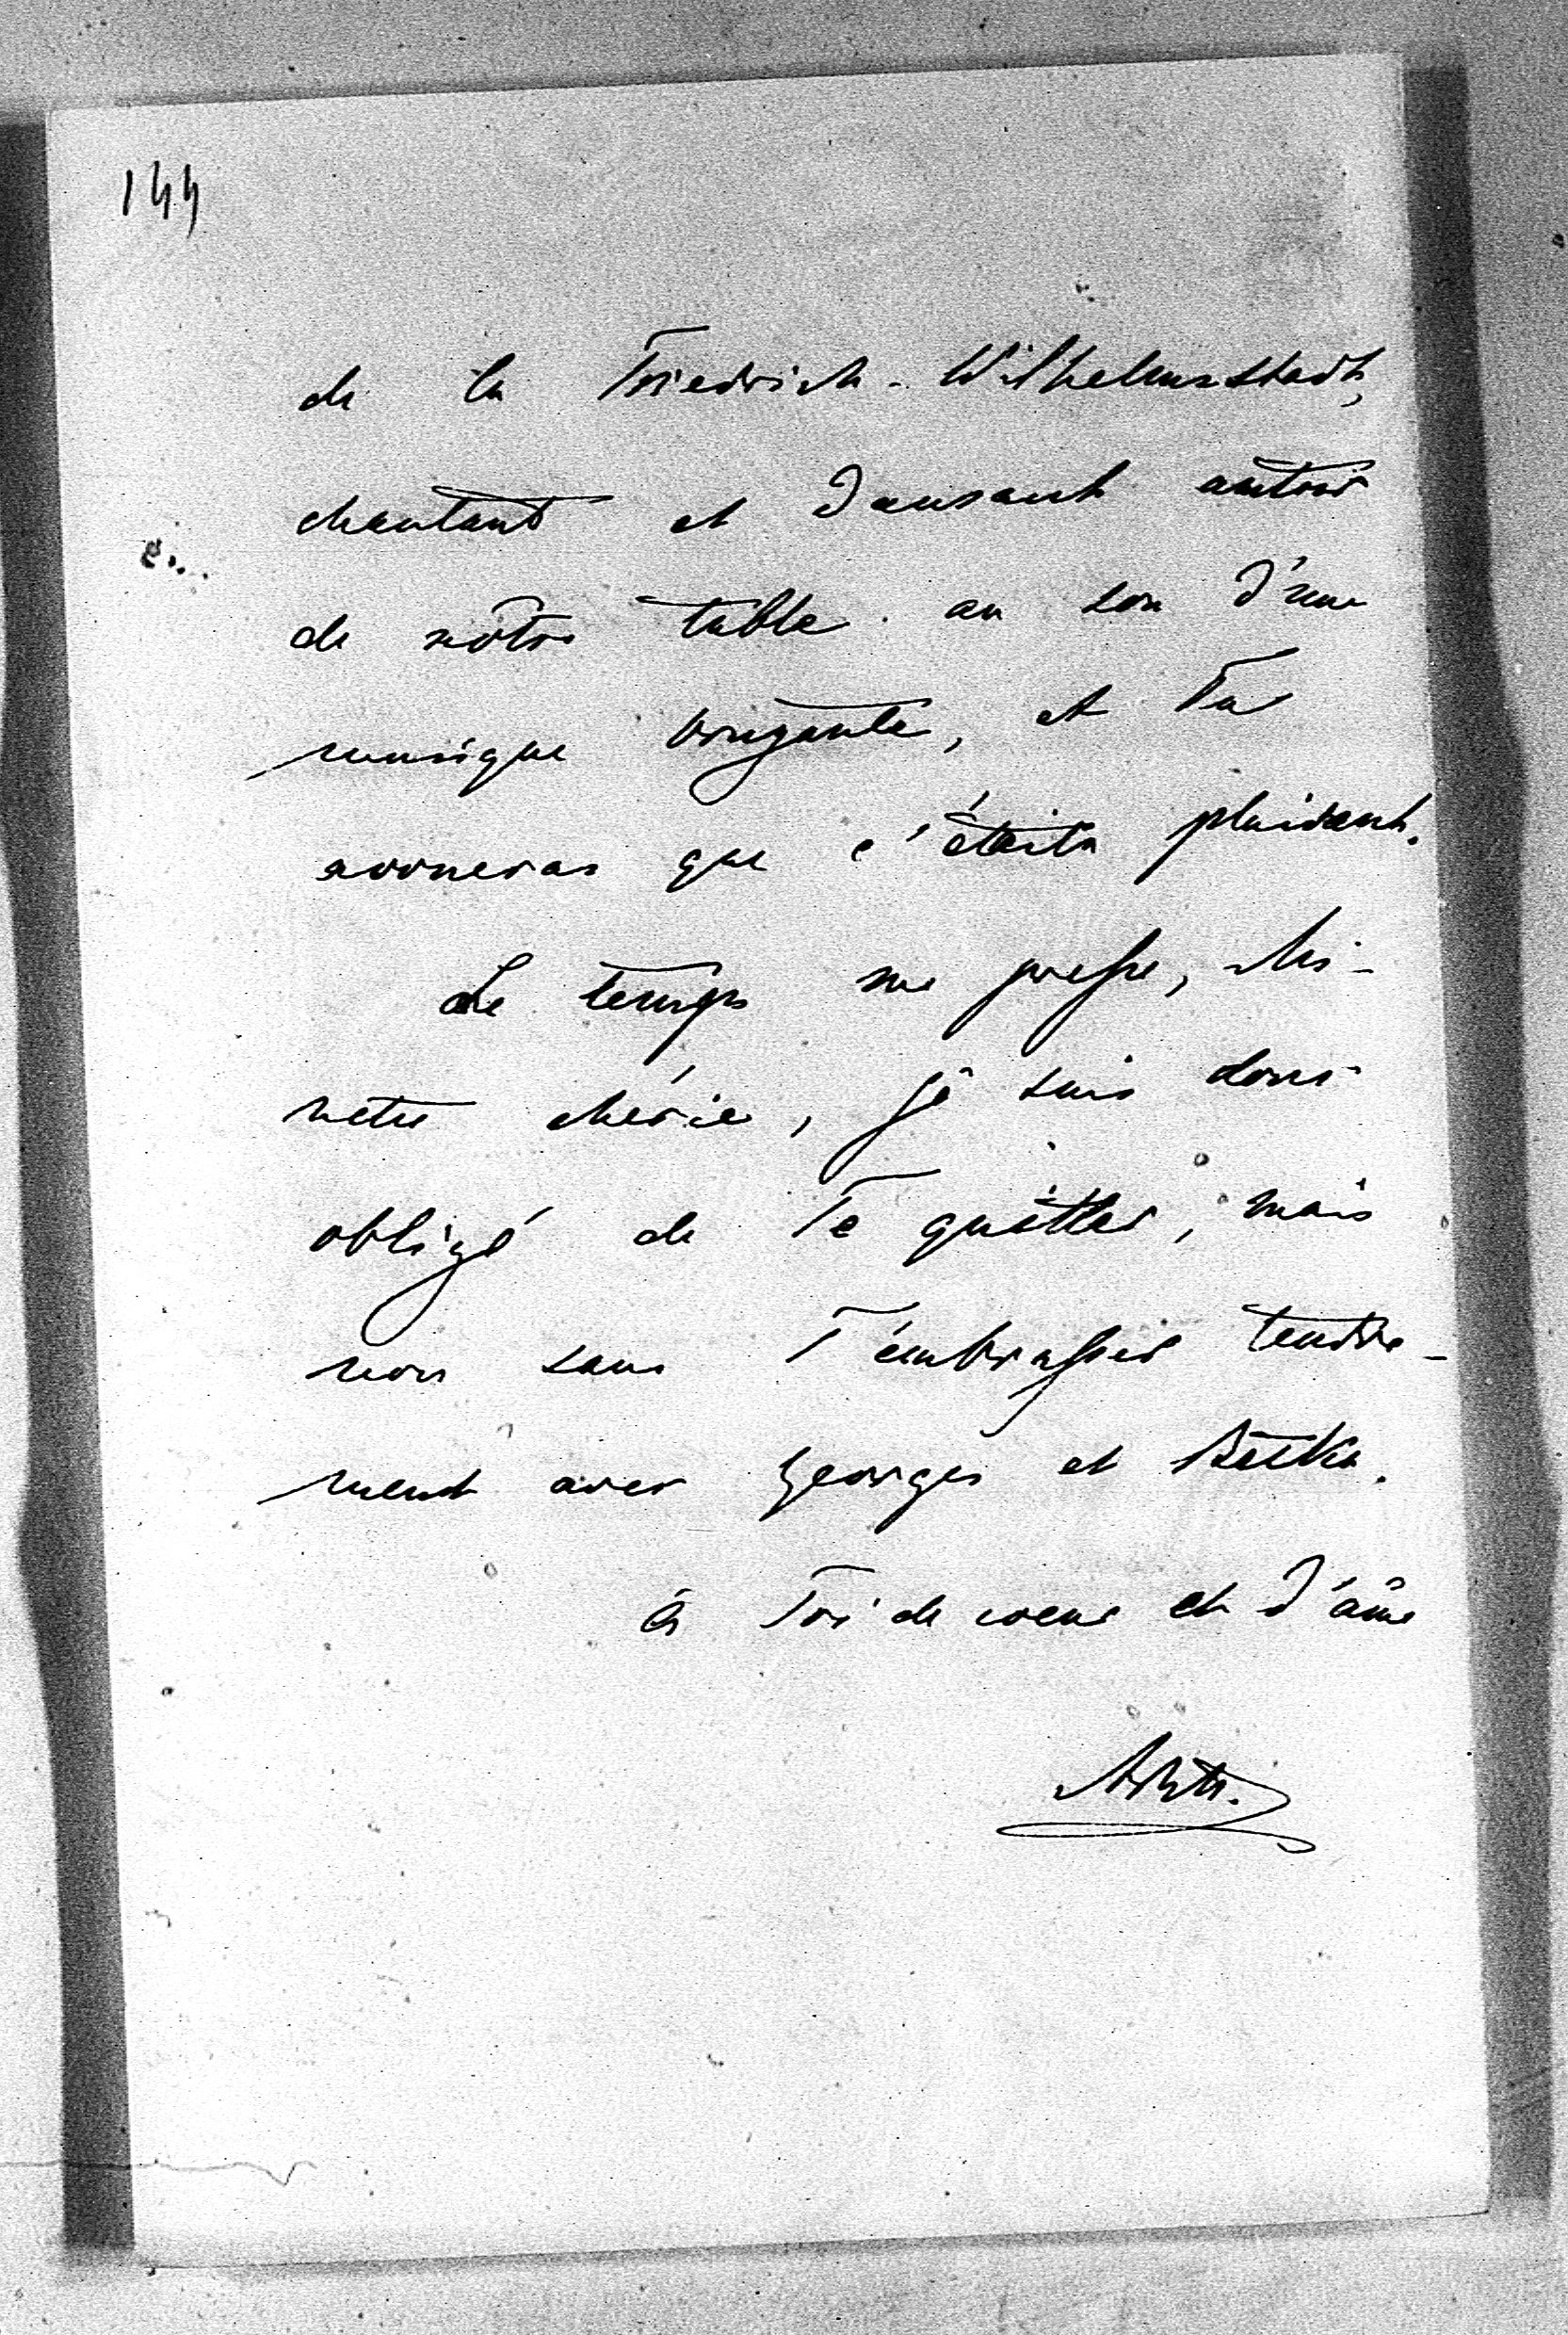 144
de la Friedrich-Wilhelmsstadt,
chantant et dansant autour
de nôtre table au son d'une
musique bruyante, et Tu
avoueras que c'était plaisant.
Le temps me presse, Mi-
nette chérie, je suis donc
obligé de Te quitter, mais
non sans T'embrasser tendre-
ment avec Georges et
à Toi de coeur et d'âme